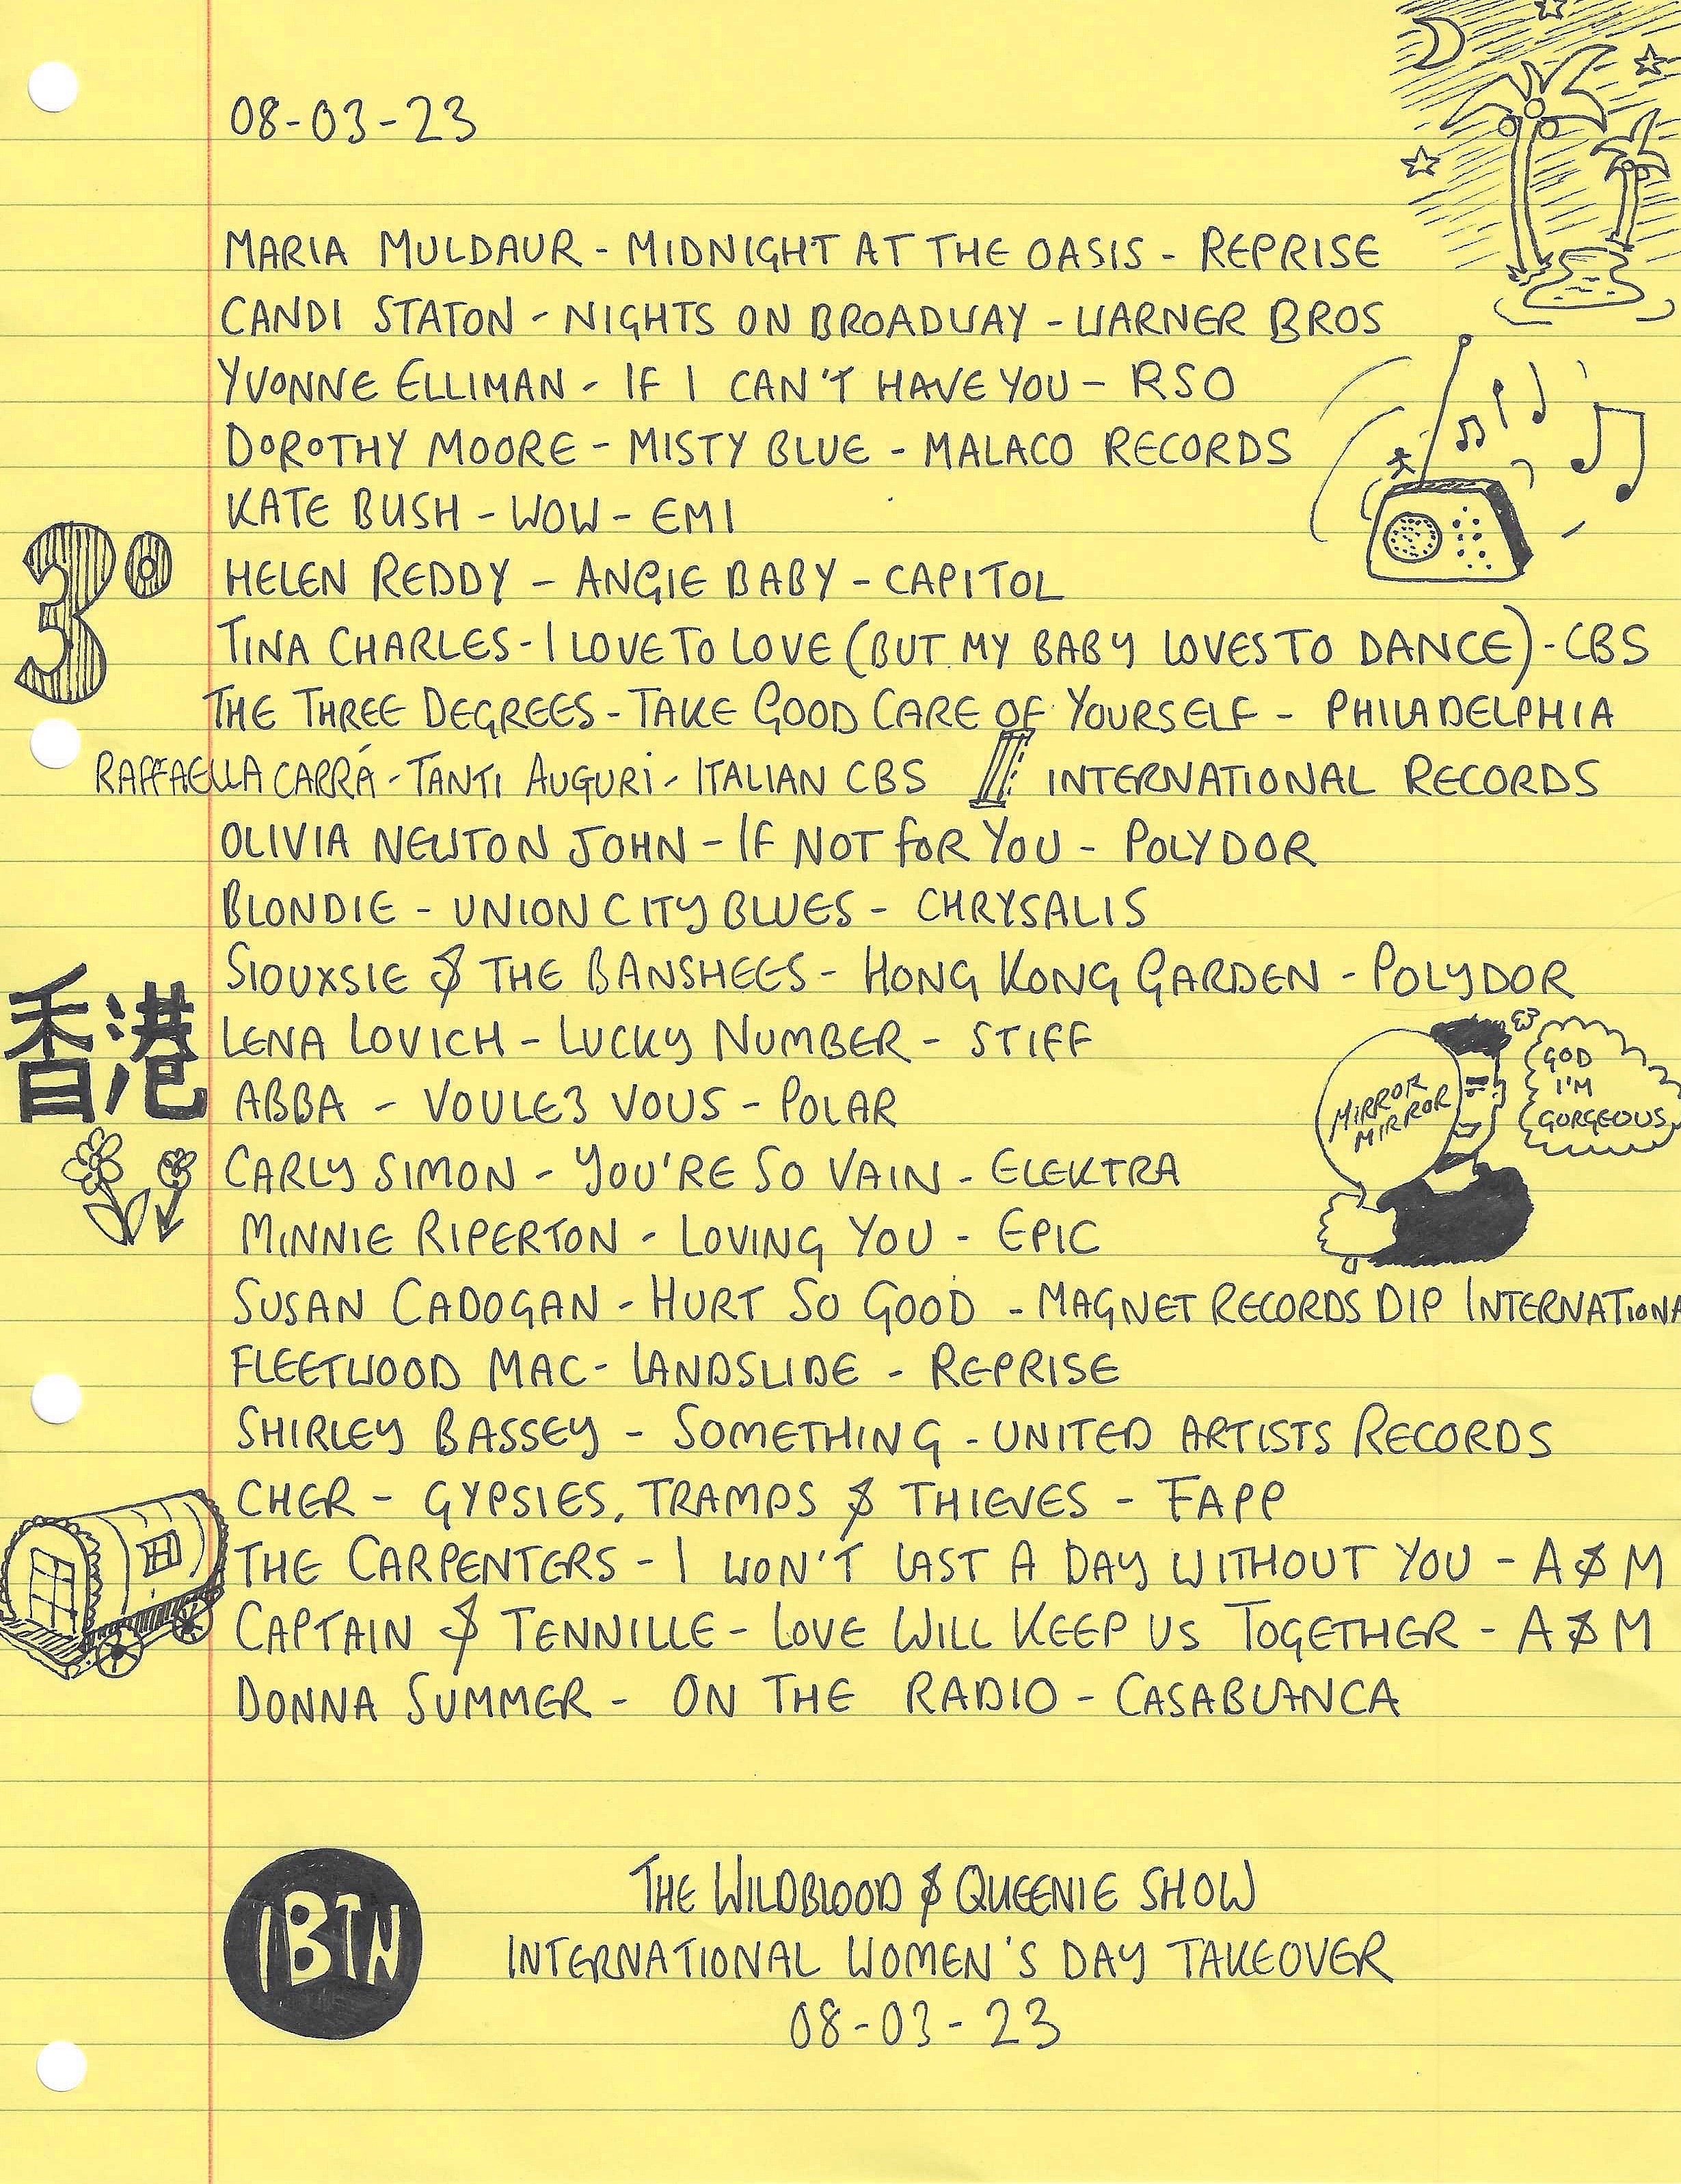 08-03-23
MARIA MULDAUR - MIDNIGHT AT THE OASIS - REPRISE
CANDI STATON - NIGHTS ON BROADWAY - WARNER BROS
YVONNE ELLIMAN - IF I CAN'T HAVE YOU - RSO
DOROTHY MOORE - MISTY BLUE - MALACO RECORDS
KATE BUSH - WOW - EMI
3°
HELEN REDDY - ANGIE BABY - CAPITOL
TINA CHARLES - I LOVE TO LOVE (BUT MY BABY LOVES TO DANCE) - CBS
THE THREE DEGREES - TAKE GOOD CARE OF YOURSELF - PHILADELPHIA
INTERNATIONAL RECORDS
RAFFAELLA CARRÁ - TANTI AUGURI - ITALIAN CBS
OLIVIA NEWTON JOHN - IF NOT FOR YOU - POLYDOR
BLONDIE - UNION CITY BLUES - CHRYSALIS
SIOUXSIE & THE BANSHEES - HONG KONG GARDEN - POLYDOR
香港
LENA LOVICH - LUCKY NUMBER - STIFF
ABBA - VOULEZ VOUS - POLAR
MIRROR
MIRROR
GOD
I'M
GORGEOUS
CARLY SIMON - YOU'RE SO VAIN - ELEKTRA
MINNIE RIPERTON - LOVING YOU - EPIC
SUSAN CADOGAN - HURT SO GOOD - MAGNET RECORDS DIP INTERNATIONA
FLEETWOOD MAC - LANDSLIDE - REPRISE
SHIRLEY BASSEY - SOMETHING - UNITED ARTISTS RECORDS
CHER - GYPSIES, TRAMPS & THIEVES - FAPP
THE CARPENTERS - I WON'T LAST A DAY WITHOUT YOU - A & M
CAPTAIN & TENNILLE - LOVE WILL KEEP US TOGETHER - A & M
DONNA SUMMER - ON THE RADIO - CASABLANCA
IBTN
THE WILDBLOOD & QUEENIE SHOW
INTERNATIONAL WOMEN'S DAY TAKEOVER
08-03-23